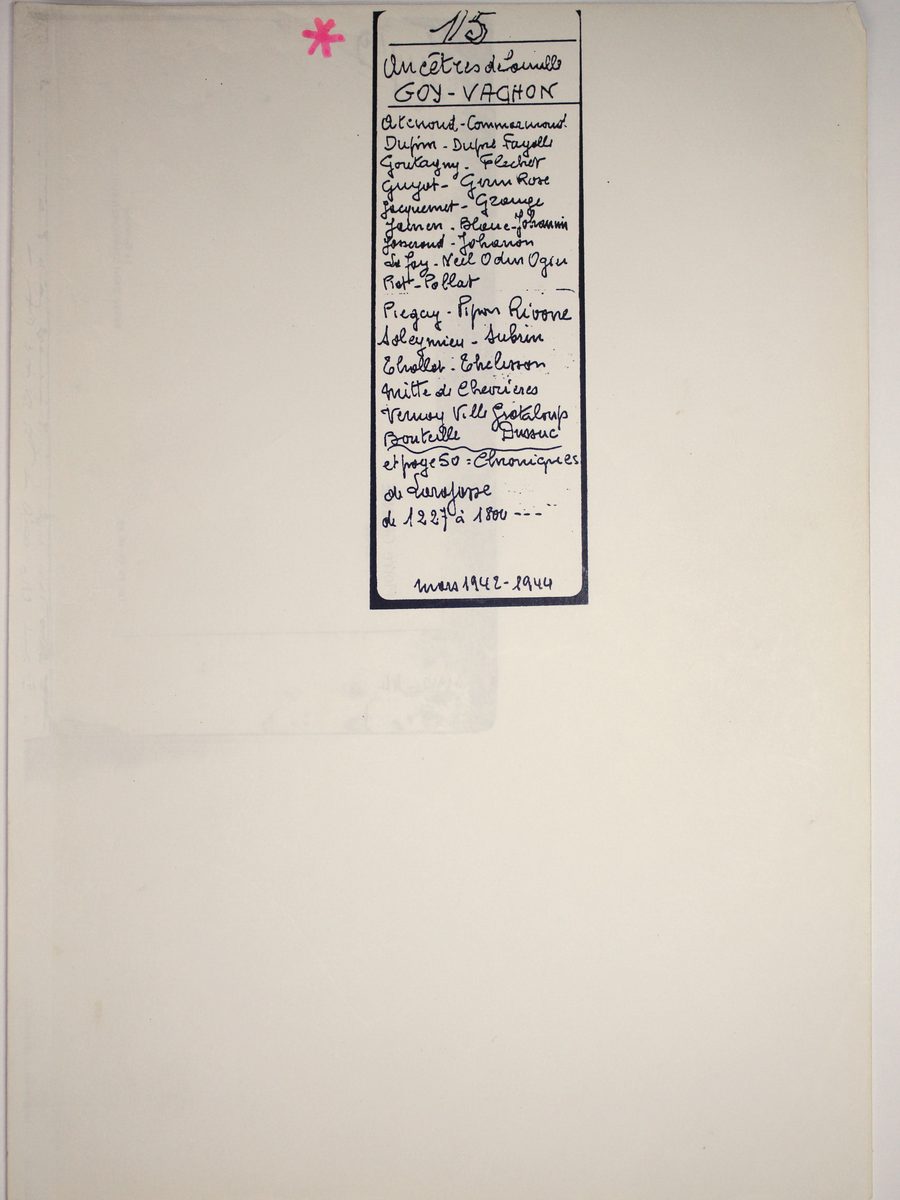 115
Ancêtres de famille
GOY - VAGHON
Commarmond
Dupin - Dupré Fayolle
Goutagny - Flechet
Guyot - Rose
Jacquemet - Grange
Blanc - Johannin
Josserand - Johanon
Odin
Piot - Pollat
Piegay - Pipon Rivoire
Soleymieu -
Thollot - Thelisson
Mitte de Chevrières
Vernay Ville Grataloup
Bouteille Dussuc
et page 50 = Chroniques
de Larajasse
de 1227 à 1800 ---
mars 1942 - 1944